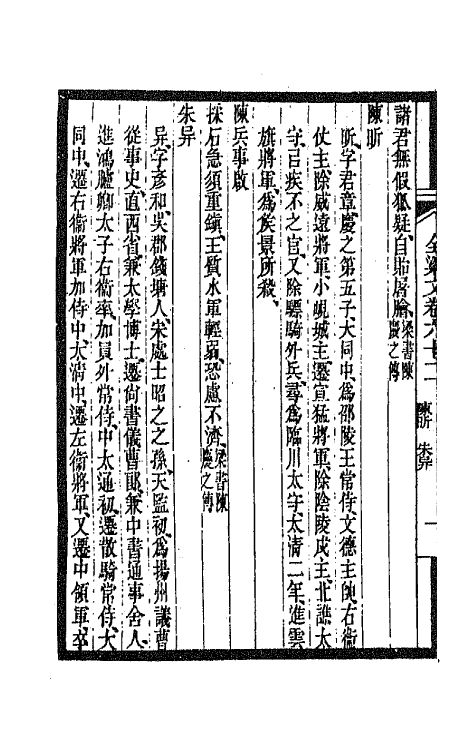 全梁文卷六十二 陳昕 朱异 一
諸君無假狐疑、自貽屠膾、梁書陳慶之傳
陳昕
昕字君章、慶之第五子、大同中、為邵陵王常侍、文德主帥、右衛
仗主、除威遠將軍、小峴城主、遷宣猛將軍、除陰陵戍主、北譙太
守、㠯疾不之官、又除驃騎外兵、尋為臨川太守、太清二年、進雲
旗將軍、為侯景所殺、
陳兵事啟
採石急須重鎮、王質水軍輕弱、恐慮不濟、梁書陳慶之傳
朱异
异字彥和、吳郡錢塘人、宋處士昭之之孫、天監初、為揚州議曹
從事史、直西省、兼太學博士、遷尚書儀曹郎、兼中書通事舍人、
進鴻臚卿、太子右衛率、加員外常侍、中大通初、遷散騎常侍、大
同中、遷右衛將軍、加侍中、太清中、遷左衛將軍、又遷中領軍、卒